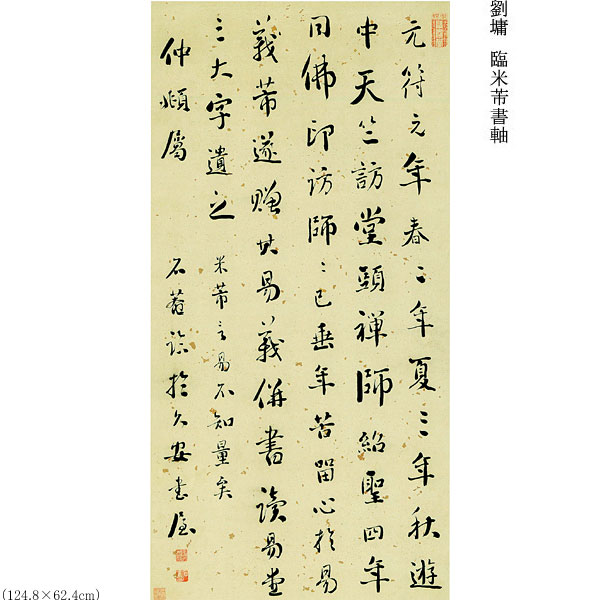 劉墉 臨米芾書軸
元符元年春二年夏三年秋遊
中天竺訪堂頭禪師紹聖四年
同佛印訪師〻已垂年苦留心於易
義芾遂贈其易義併書讀易堂
三大字遺之 米芾言易不知量矣
仲頫屬 石菴臨於久安書屋
(124.8×62.4cm)